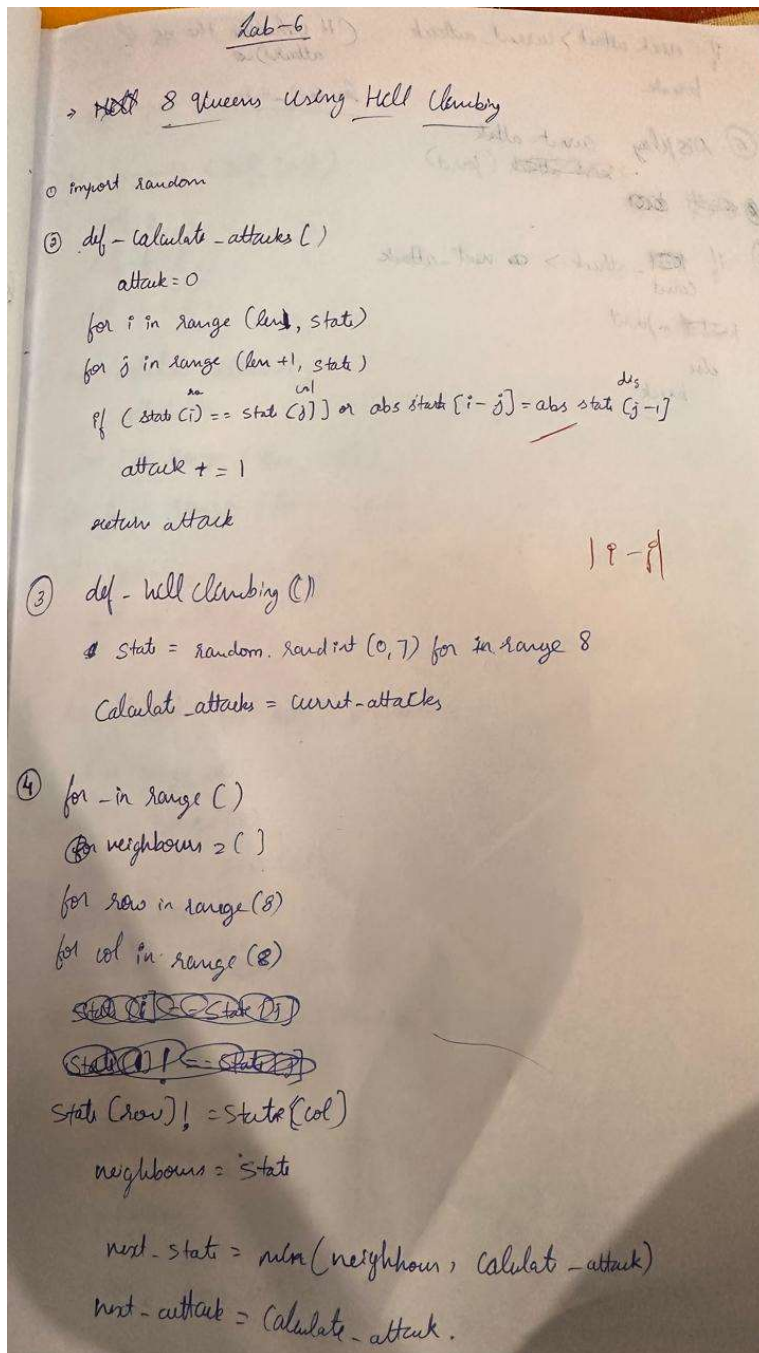 Lab-6
→ 8 Queens Using Hill Climbing
① import random
② def - calculate - attacks ( )
attack = 0
for i in range (len, state)
for j in range (len +1, state)
row col dis
if (state (i) == state (j)] or abs state [i - j] = abs state [j-1]
attack + = 1
return attack
|i-j|
③ def - hill climbing ( )
state = random. randint (0,7) for in range 8
Calculat _attacks = curret-attacks
④ for - in range ( )
neighbours = ( ]
for row in range (8)
for col in range (8)
State [i] == State [j]
State [i] ! == State [j]
State (row) ! = State [col)
neighbours = State
next - state = min (neighbour, Calulate - attack)
next - attack = Calculate - attack.